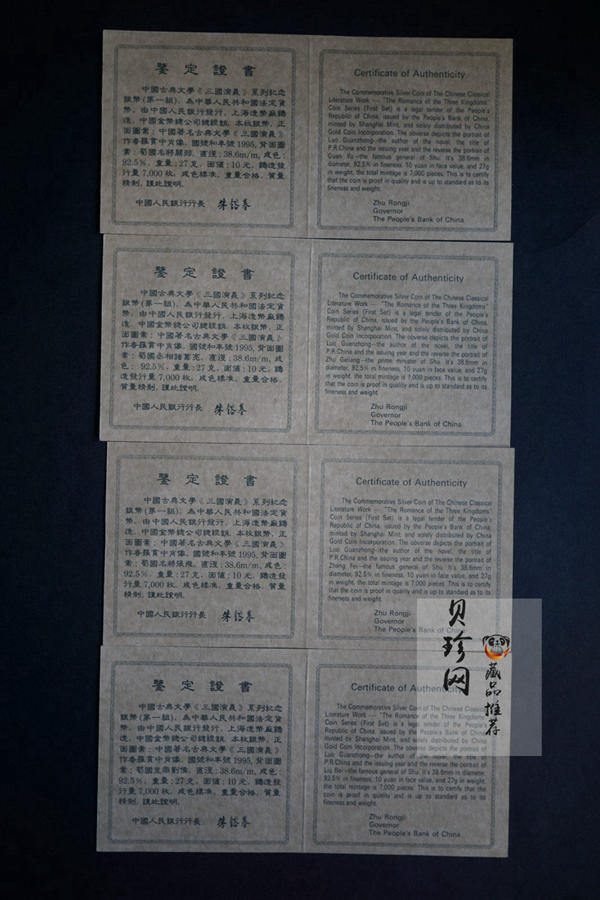 鑒定證書
中國古典文學《三國演義》系列紀念
銀幣(第一組)，為中華人民共和國法定貨
幣，由中國人民銀行發行，上海造幣廠鑄
造，中國金幣總公司總經銷。本枚銀幣，正
面圖案：中國著名古典文學《三國演義》
作者羅貫中肖像、國號和年號1995，背面圖
案：蜀國名將關羽。直徑：38.6m/m，成色：
92.5%，重量：27克，面值：10元，鑄造發
行量7,000枚。成色標准，重量合格，質量
精制，謹此證明。
中國人民銀行行長
Certificate of Authenticity
The Commemorative Silver Coin of The Chinese Classical
Literature Work --- "The Romance of the Three Kingdoms"
Coin Series (First Set) is a legal tender of the People's
Republic of China, issued by the People's Bank of China,
minted by Shanghai Mint, and solely distributed by China
Gold Coin Incorporation. The obverse depicts the portrait of
Luo Guanzhong—the author of the novel, the title of
P.R.China and the issuing year and the reverse the portrait of
Guan Yu—the famous general of Shu. It's 38.6mm in
diameter, 92.5% in fineness, 10 yuan in face value, and 27g
in weight, the total mintage is 7,000 pieces. This is to certify
that the coin is proof in quality and is up to standard as to its
fineness and weight.
Zhu Rongji
Governor
The People's Bank of China
鑒定證書
中國古典文學《三國演義》系列紀念
銀幣(第一組)，為中華人民共和國法定貨
幣，由中國人民銀行發行，上海造幣廠鑄
造，中國金幣總公司總經銷。本枚銀幣，正
面圖案：中國著名古典文學《三國演義》
作者羅貫中肖像、國號和年號1995，背面圖
案：蜀國丞相諸葛亮。直徑：38.6m/m，成
色：92.5%，重量：27克，面值：10元，鑄
造發行量7,000枚。成色標准，重量合格，
質量精制，謹此證明。
中國人民銀行行長
Certificate of Authenticity
The Commemorative Silver Coin of The Chinese Classical
Literature Work --- "The Romance of the Three Kingdoms"
Coin Series (First Set) is a legal tender of the People's
Republic of China, issued by the People's Bank of China,
minted by Shanghai Mint, and solely distributed by China
Gold Coin Incorporation. The obverse depicts the portrait of
Luo Guanzhong—the author of the novel, the title of
P.R.China and the issuing year and the reverse the portrait of
Zhu Geliang—the prime minister of Shu. It's 38.6mm in
diameter, 92.5% in fineness, 10 yuan in face value, and 27g
in weight, the total mintage is 7,000 pieces. This is to certify
that the coin is proof in quality and is up to standard as to its
fineness and weight.
Zhu Rongji
Governor
The People's Bank of China
鑒定證書
中國古典文學《三國演義》系列紀念
銀幣(第一組)，為中華人民共和國法定貨
幣，由中國人民銀行發行，上海造幣廠鑄
造，中國金幣總公司總經銷。本枚銀幣，正
面圖案：中國著名古典文學《三國演義》
作者羅貫中肖像、國號和年號1995，背面圖
案：蜀國名將張飛。直徑：38.6m/m，成色：
92.5%，重量：27克，面值：10元，鑄造發
行量7,000枚。成色標准，重量合格，質量
精制，謹此證明。
中國人民銀行行長
Certificate of Authenticity
The Commemorative Silver Coin of The Chinese Classical
Literature Work --- "The Romance of the Three Kingdoms"
Coin Series (First Set) is a legal tender of the People's
Republic of China, issued by the People's Bank of China,
minted by Shanghai Mint, and solely distributed by China
Gold Coin Incorporation. The obverse depicts the portrait of
Luo Guanzhong—the author of the novel, the title of
P.R.China and the issuing year and the reverse the portrait of
Zhang Fei—the famous general of Shu. It's 38.6mm in
diameter, 92.5% in fineness, 10 yuan in face value, and 27g
in weight, the total mintage is 7,000 pieces. This is to certify
that the coin is proof in quality and is up to standard as to its
fineness and weight.
Zhu Rongji
Governor
The People's Bank of China
鑒定證書
中國古典文學《三國演義》系列紀念
銀幣(第一組)，為中華人民共和國法定貨
幣，由中國人民銀行發行，上海造幣廠鑄
造，中國金幣總公司總經銷。本枚銀幣，正
面圖案：中國著名古典文學《三國演義》
作者羅貫中肖像、國號和年號1995，背面圖
案：蜀國皇帝劉備。直徑：38.6m/m，成色：
92.5%，重量：27克，面值：10元，鑄造發
行量7,000枚。成色標准，重量合格，質量
精制，謹此證明。
中國人民銀行行長
Certificate of Authenticity
The Commemorative Silver Coin of The Chinese Classical
Literature Work --- "The Romance of the Three Kingdoms"
Coin Series (First Set) is a legal tender of the People's
Republic of China, issued by the People's Bank of China,
minted by Shanghai Mint, and solely distributed by China
Gold Coin Incorporation. The obverse depicts the portrait of
Luo Guanzhong—the author of the novel, the title of
P.R.China and the issuing year and the reverse the portrait of
Liu Bei—the famous general of Shu. It's 38.6mm in diameter,
92.5% in fineness, 10 yuan in face value, and 27g in weight,
the total mintage is 7,000 pieces. This is to certify that the
coin is proof in quality and is up to standard as to its fineness
and weight.
Zhu Rongji
Governor
The People's Bank of China
贝珍网
藏品推荐